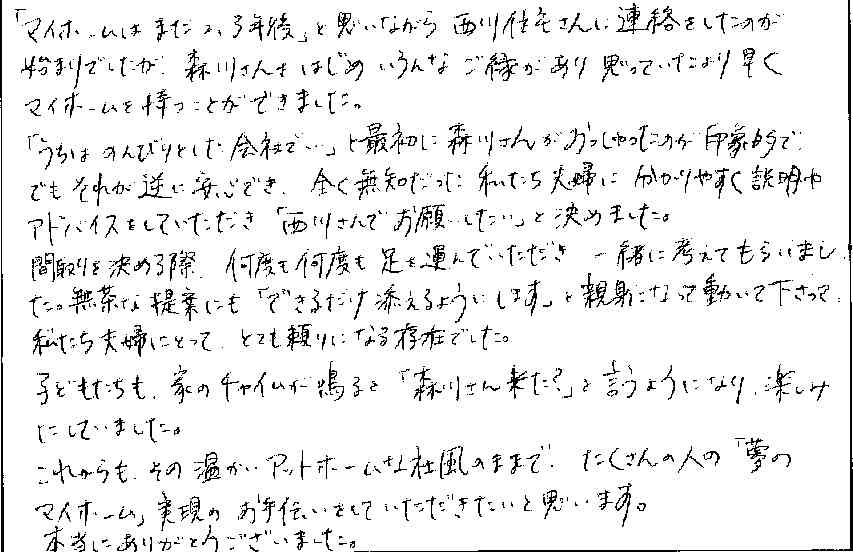 「マイホームはまだ2、3年後」と思いながら西川住宅さんに連絡をしたのが
始まりでしたが、森川さんをはじめいろんなご縁があり思っていたより早く
マイホームを持つことができました。
「うちはのんびりとした会社で…」と最初に森川さんがおっしゃったのが印象的で、
でもそれが逆に安心でき、全く無知だった私たち夫婦に分かりやすく説明や
アドバイスをしていただき「西川さんでお願いしたい」と決めました。
間取りを決める際、何度も何度も足を運んでいただき一緒に考えてもらいまし
た。無茶な提案にも「できるだけ添えるようにします」と親身になって動いて下さって、
私たち夫婦にとって、とても頼りになる存在でした。
子どもたちも、家のチャイムが鳴ると「森川さん来た?」と言うようになり、楽しみ
にしていました。
これからも、その温かいアットホームな社風のままで、たくさんの人の「夢の
マイホーム」実現のお手伝いをしていただきたいと思います。
本当にありがとうございました。